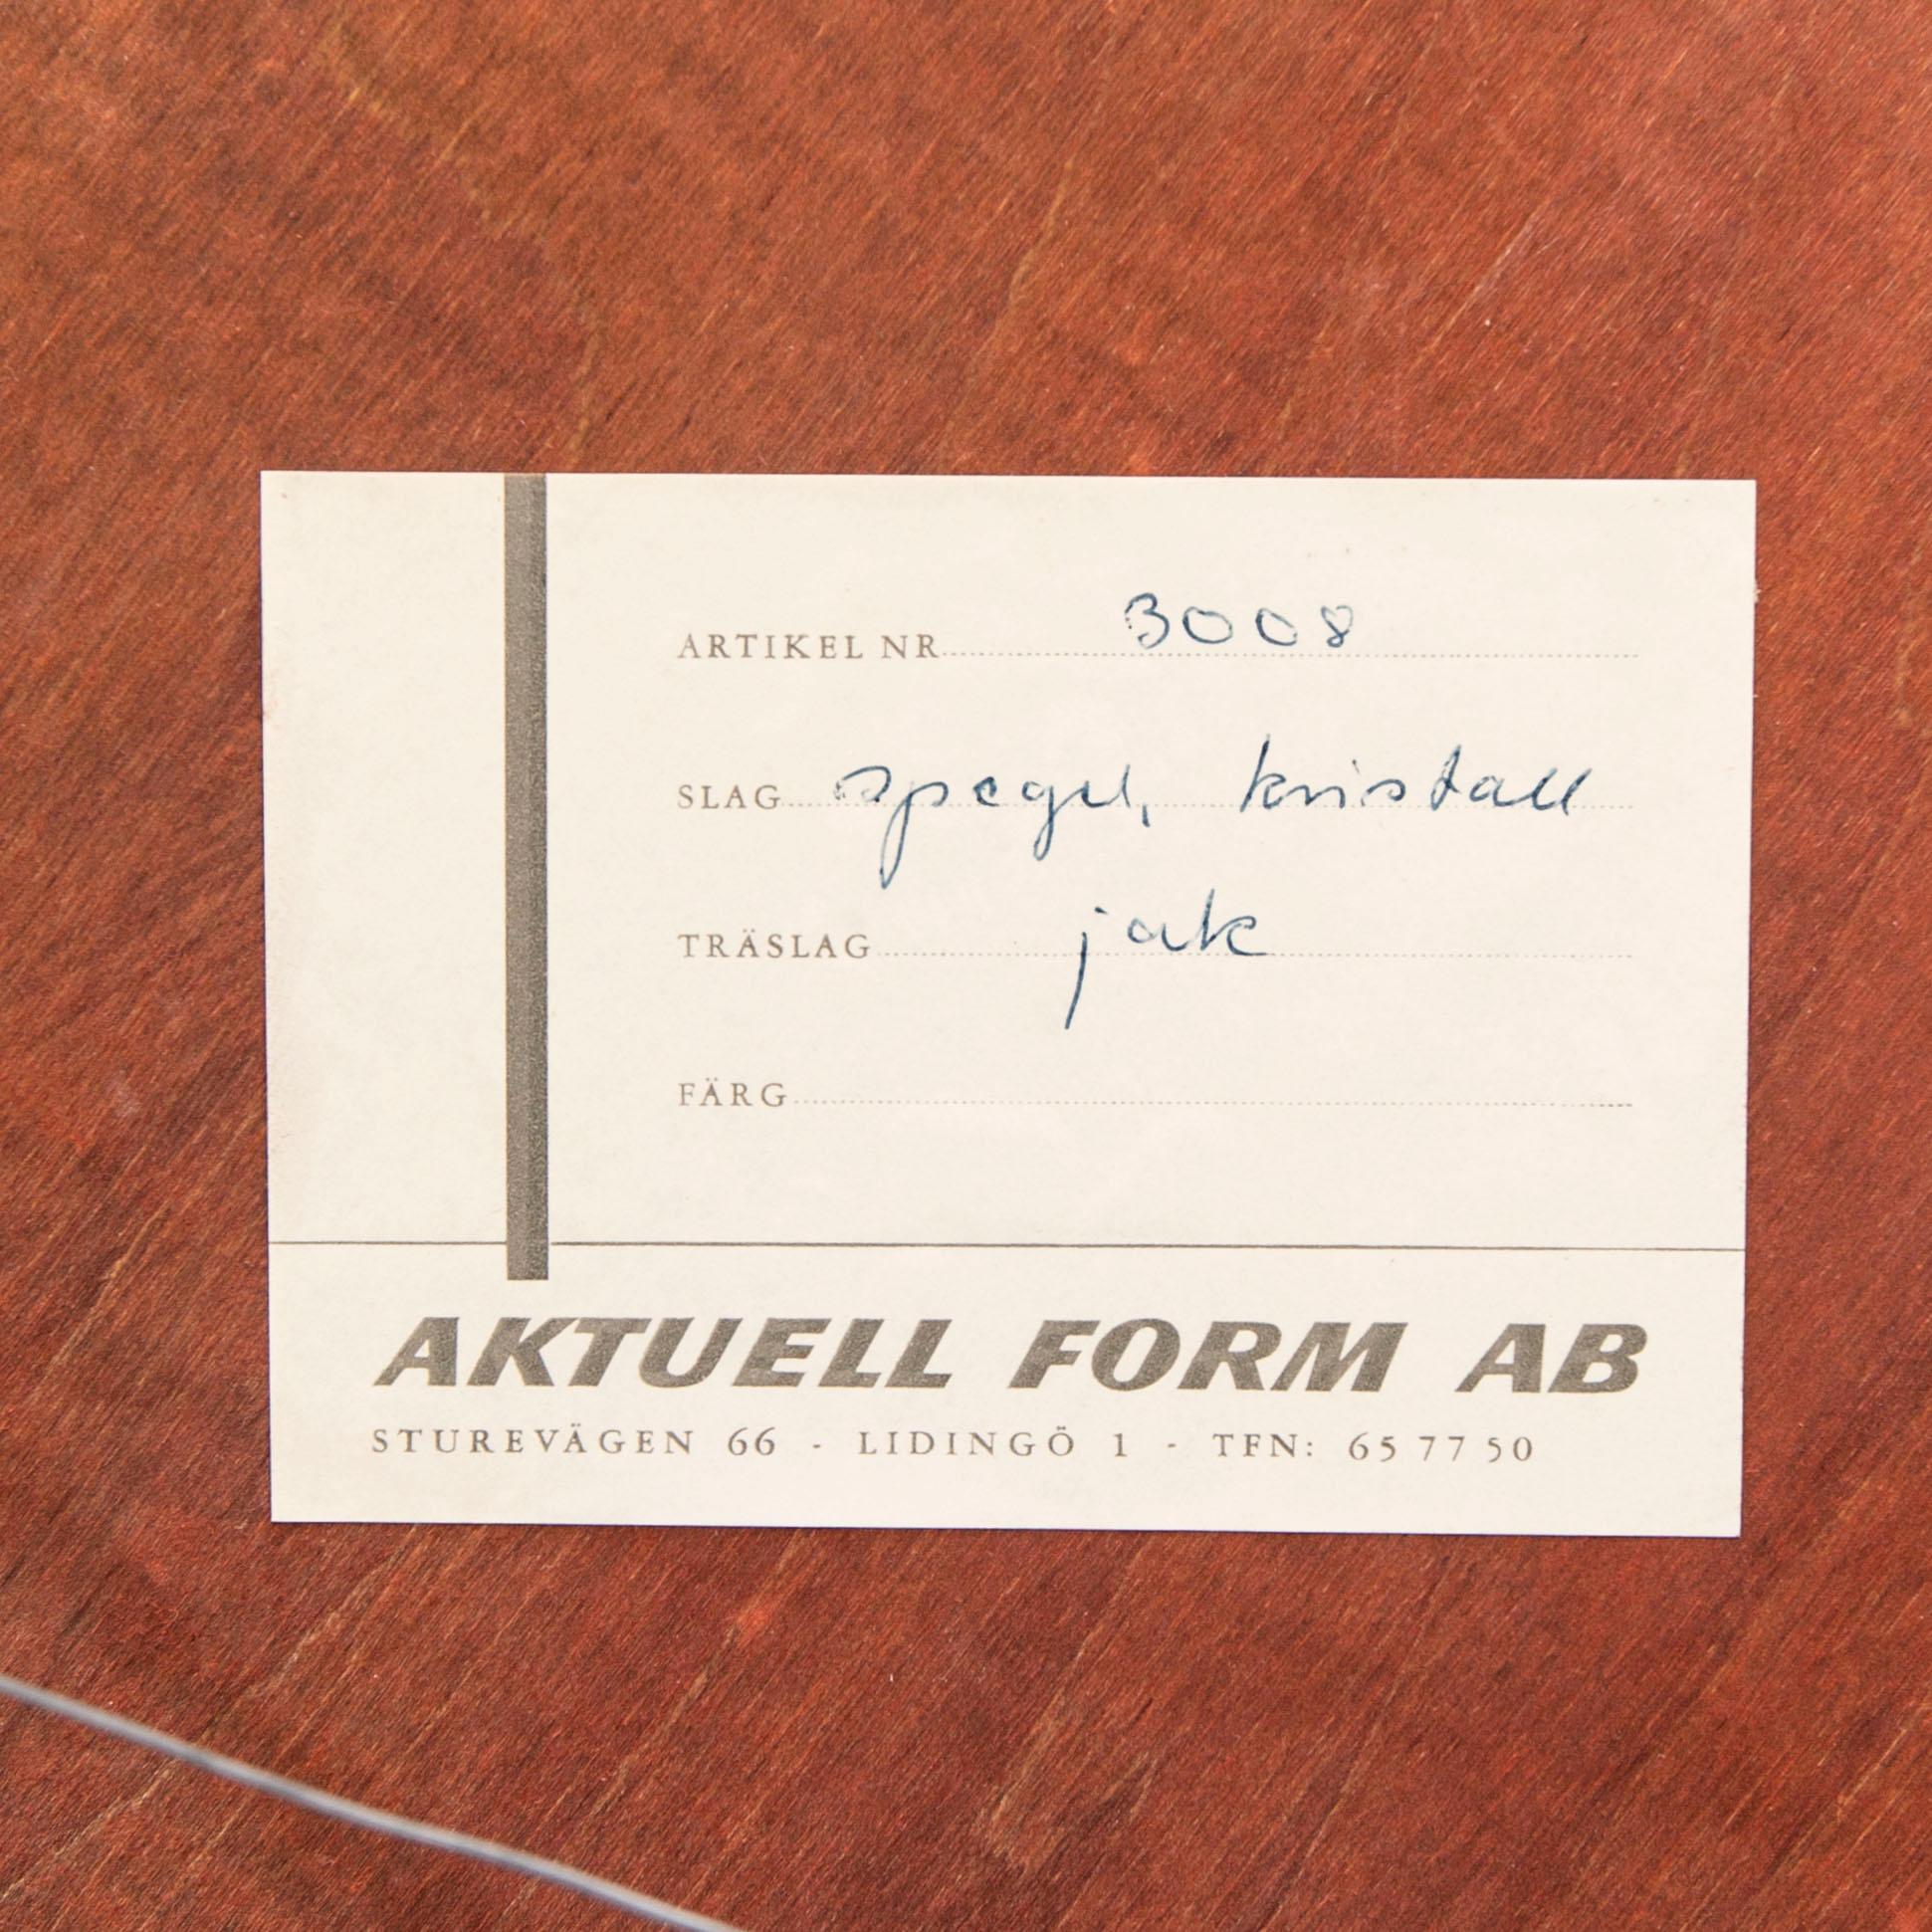 ARTIKEL NR 3008
SLAG spegel, kristall
TRÄSLAG jak
FÄRG
AKTUELL FORM AB
STUREVÄGEN 66 - LIDINGÖ 1 - TFN: 65 77 50